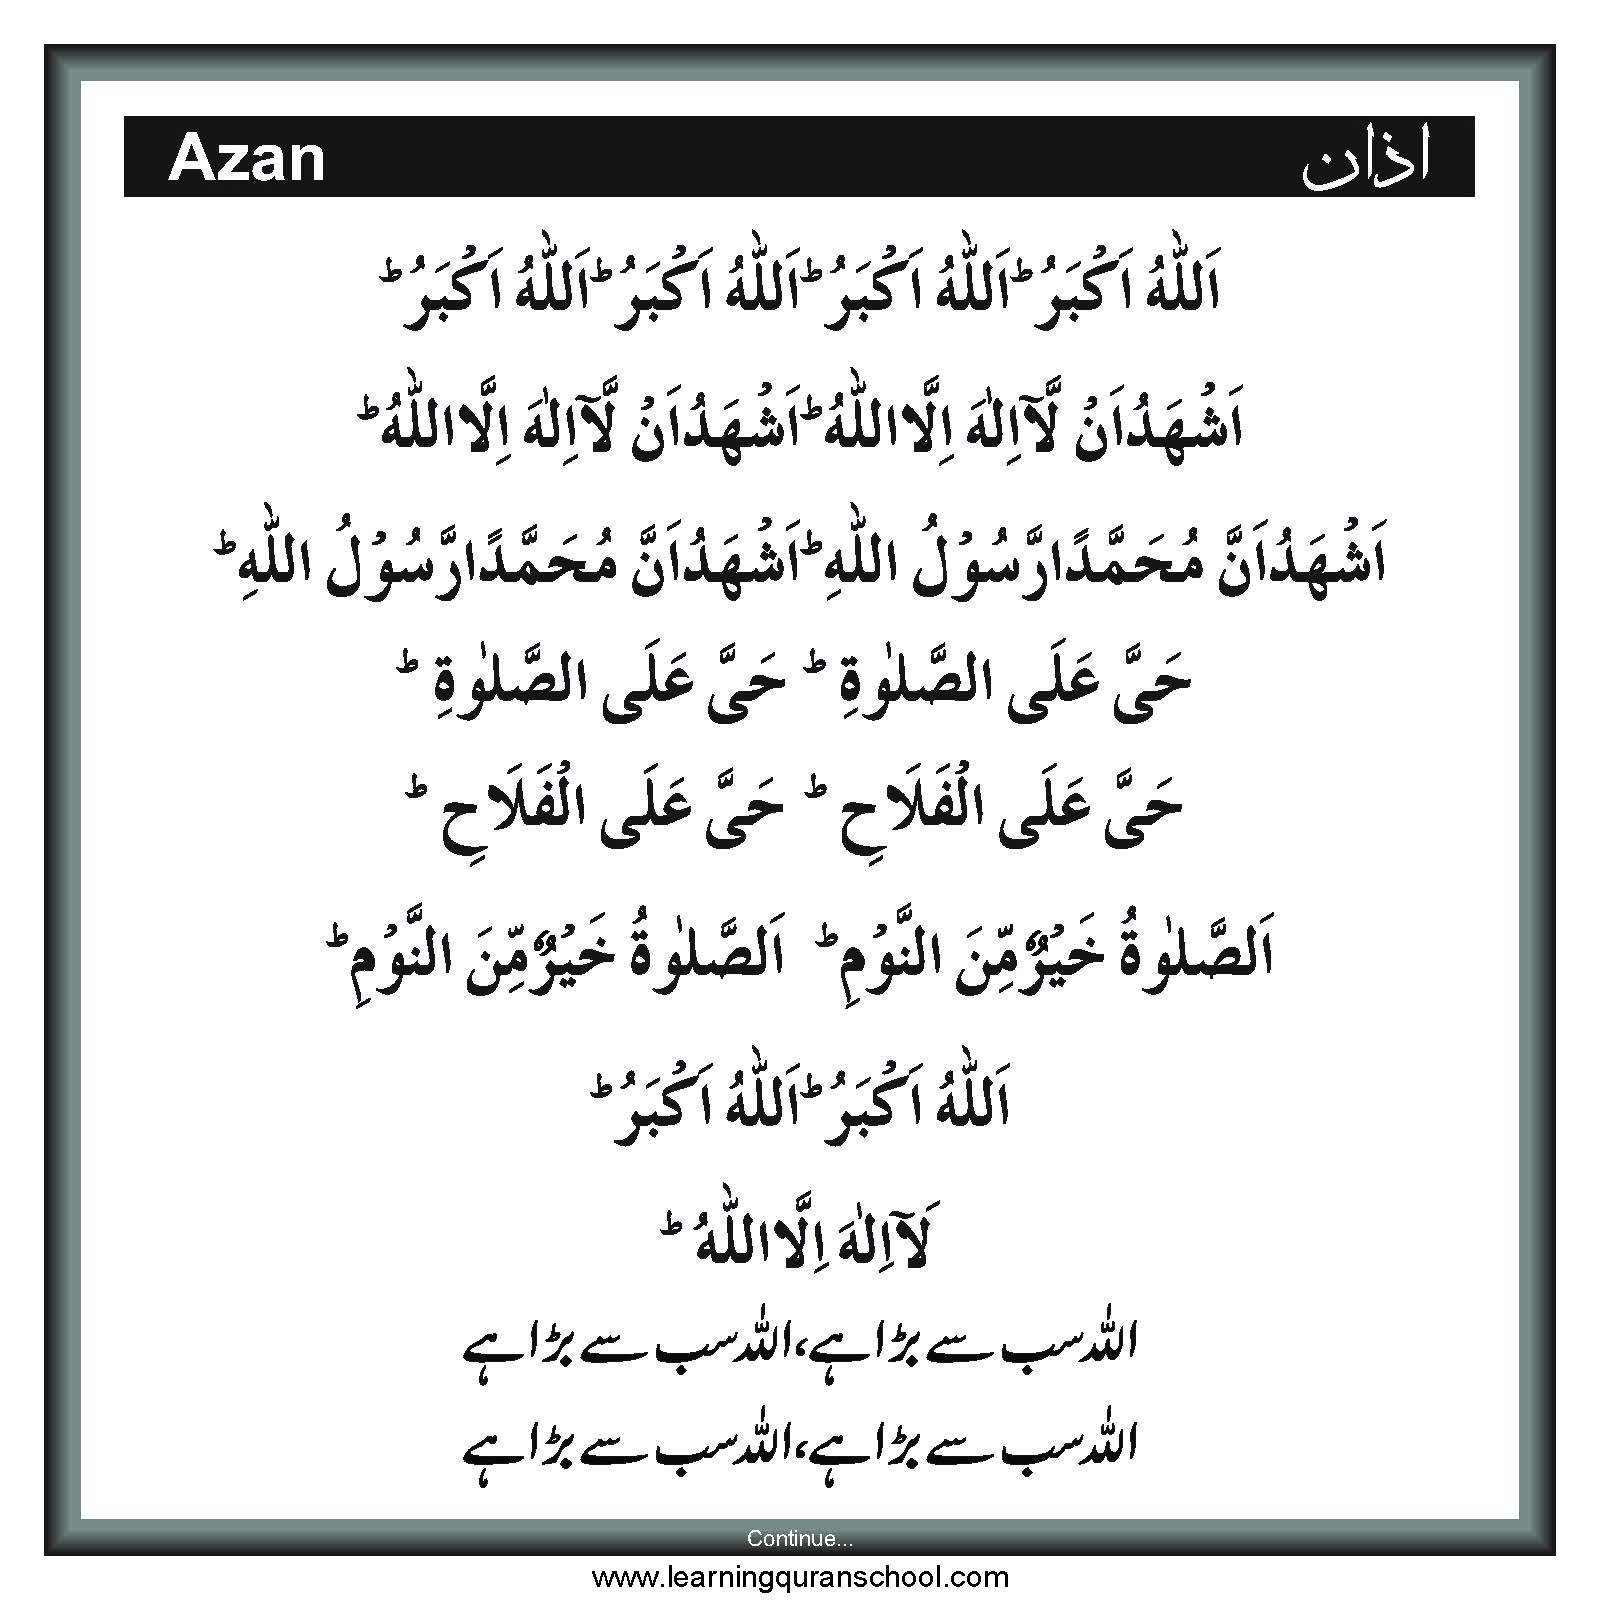 Azan اذان
اَللّٰهُ اَكْبَرُ ؕ اَللّٰهُ اَكْبَرُ ؕ اَللّٰهُ اَكْبَرُ ؕ اَللّٰهُ اَكْبَرُ ؕ
اَشْهَدُاَنْ لَّآاِلٰهَ اِلَّااللّٰهُ ؕ اَشْهَدُاَنْ لَّآاِلٰهَ اِلَّااللّٰهُ ؕ
اَشْهَدُاَنَّ مُحَمَّدًارَّسُوْلُ اللّٰهِ ؕ اَشْهَدُاَنَّ مُحَمَّدًارَّسُوْلُ اللّٰهِ ؕ
حَیَّ عَلَی الصَّلٰوةِ ؕ حَیَّ عَلَی الصَّلٰوةِ ؕ
حَیَّ عَلَی الْفَلَاحِ ؕ حَیَّ عَلَی الْفَلَاحِ ؕ
اَلصَّلٰوةُ خَيْرٌمِّنَ النَّوْمِ ؕ اَلصَّلٰوةُ خَيْرٌمِّنَ النَّوْمِ ؕ
اَللّٰهُ اَكْبَرُ ؕ اَللّٰهُ اَكْبَرُ ؕ
لَآاِلٰهَ اِلَّااللّٰهُ ؕ
اللہ سب سے بڑا ہے، اللہ سب سے بڑا ہے
اللہ سب سے بڑا ہے، اللہ سب سے بڑا ہے
Continue...
www.learningquranschool.com